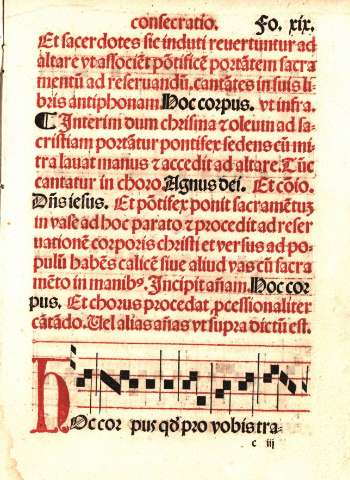 consecratio. Fo. xix.
Et sacerdotes sic induti reuertuntur ad
altare vt associēt pōtificē portātem sacra
mentū ad reseruandū, cantātes in suis li-
bris antiphonam. Hoc corpus. vt infra.
¶ Interim dum chrisma ⁊ oleum ad sa-
cristiam portātur pontifex sedens cū mi
tra lauat manus ⁊ accedit ad altare. Tūc
cantatur in choro. Agnus dei. Et cōio.
Dn̄s iesus. Et pōtifex ponit sacramētuꝫ
in vase ad hoc parato ⁊ procedit ad reser
uationē corporis christi et versus ad po-
pulū habēs calicē siue aliud vas cū sacra
mēto in manibꝰ. Incipit añam. Hoc cor
pus. Et chorus procedat ꝓcessionaliter
cātādo. Uel alias añas vt supra dictū est.
HOc cor pus qd̓ pro vobis tra-
c iij